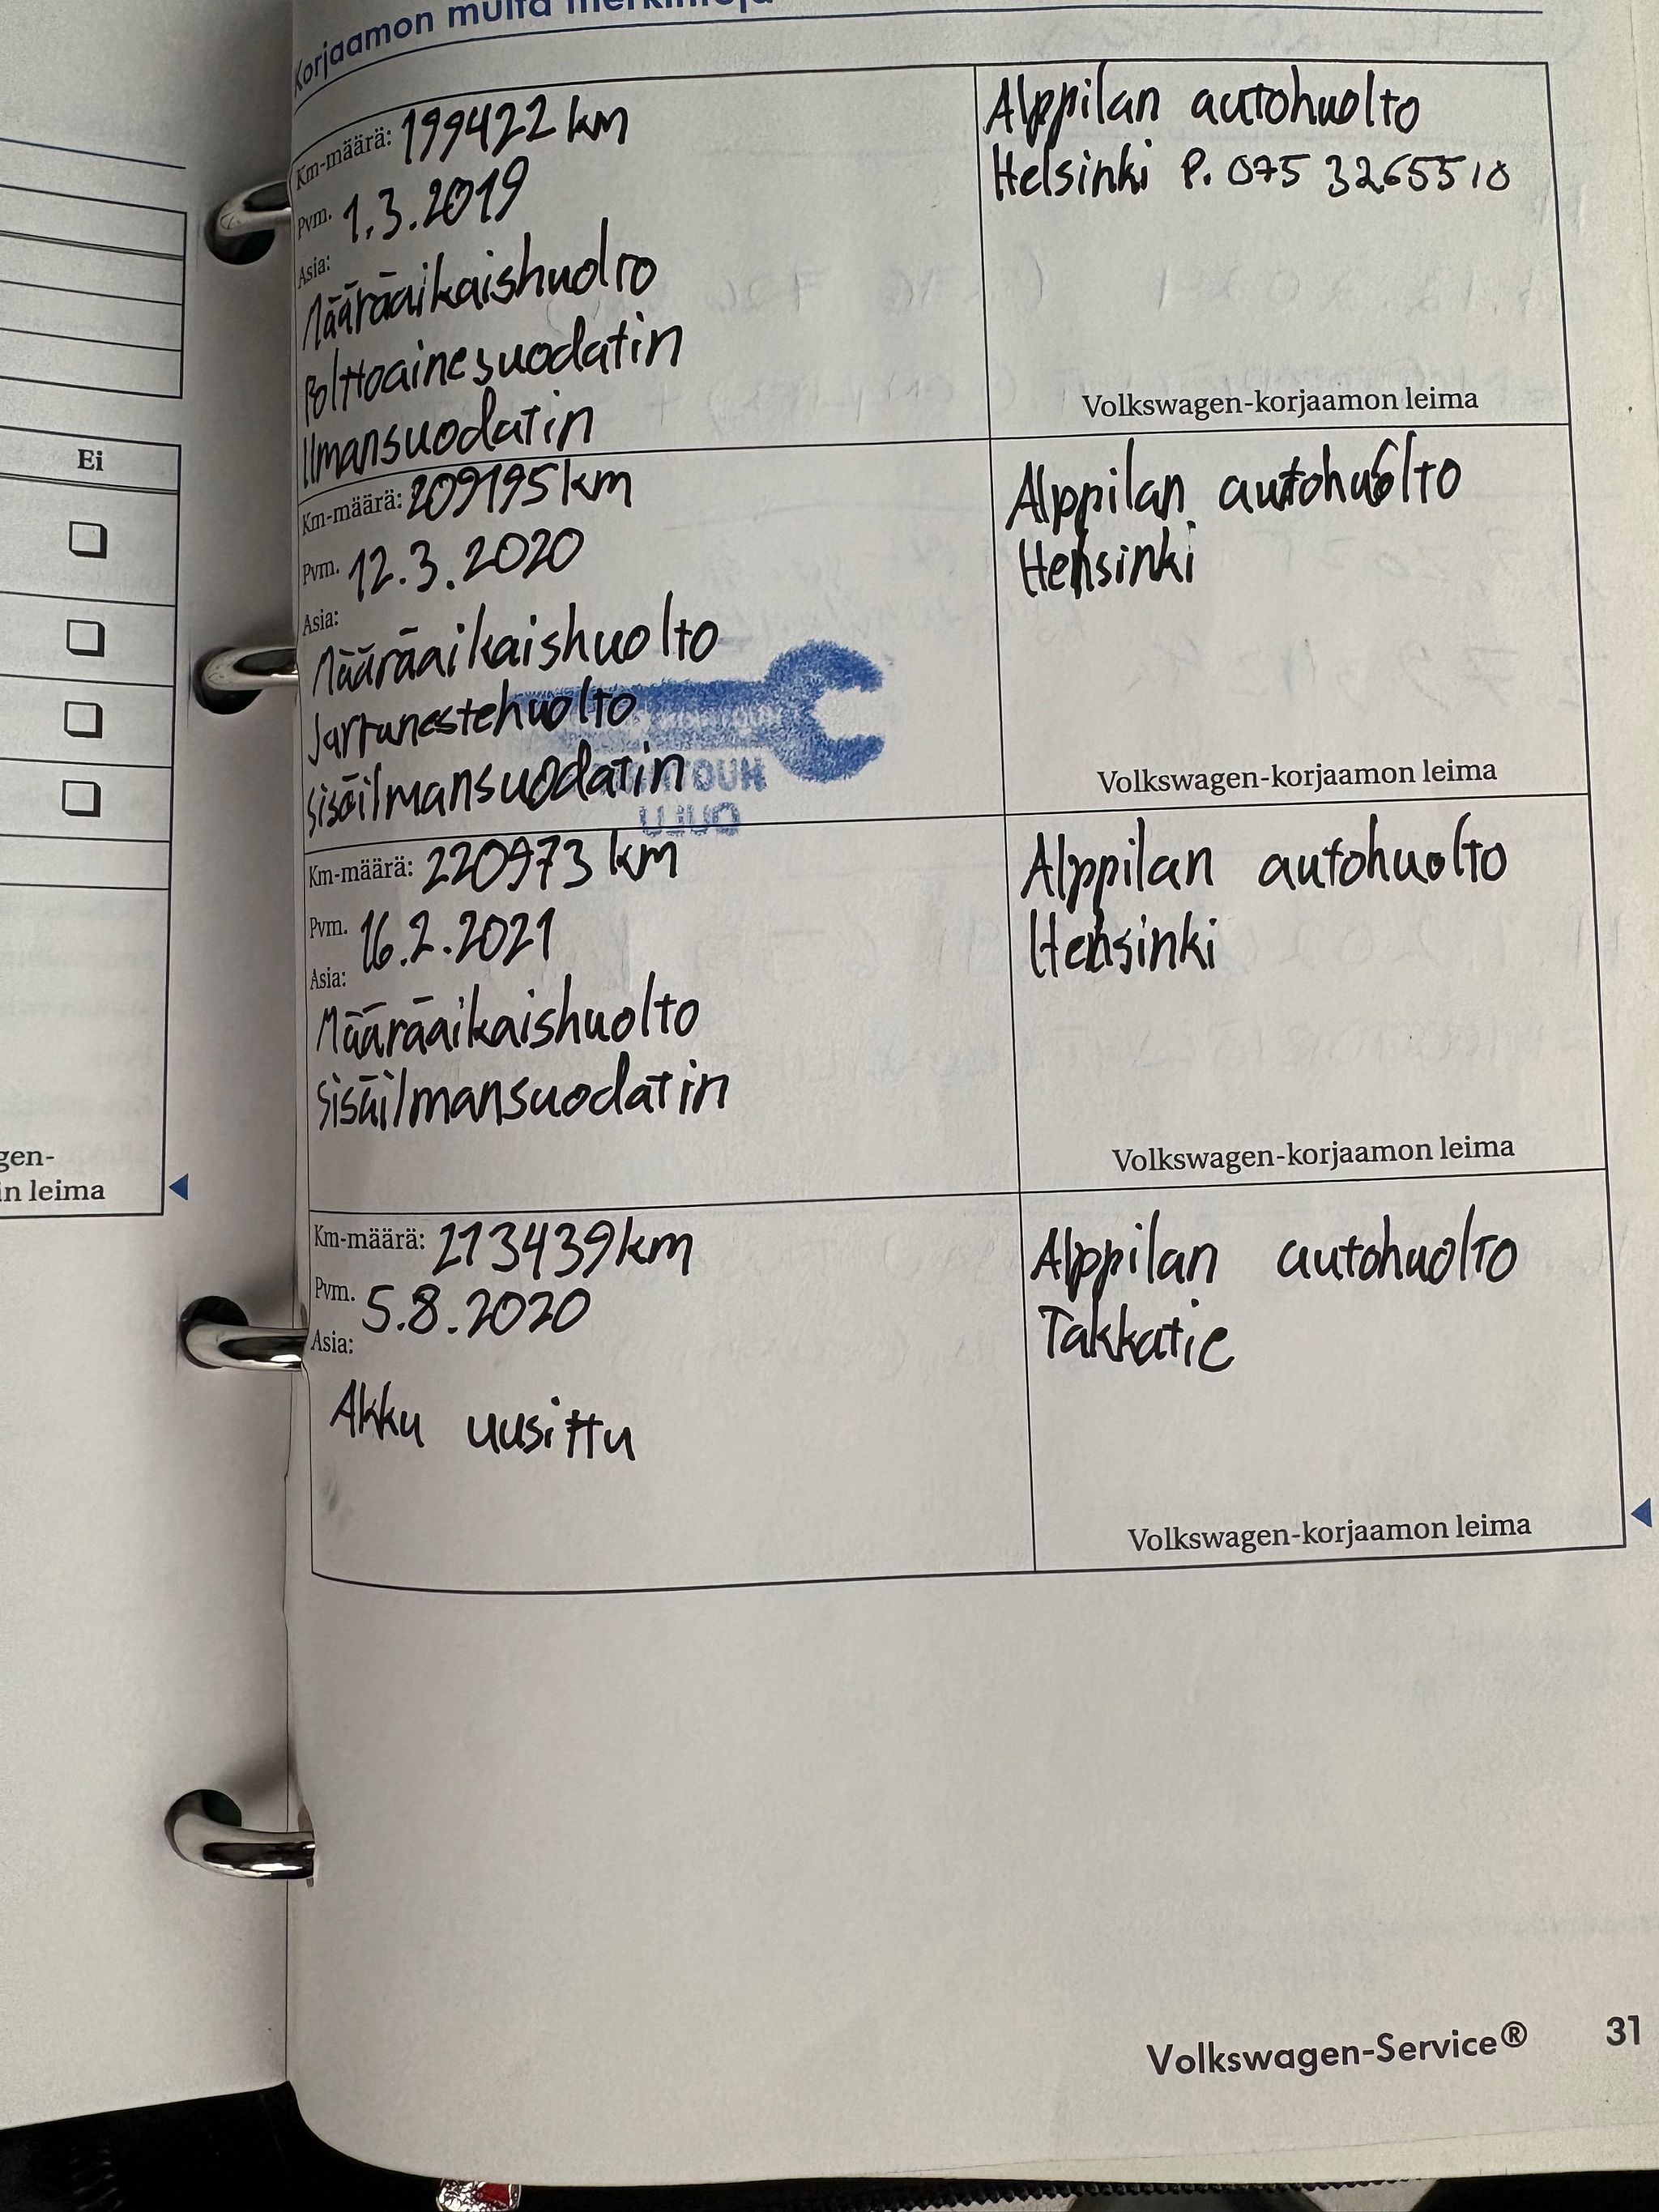 Korjaamon muita merkintöjä
Km-määrä: 199422 km
Pvm. 1.3.2019
Asia:
Määräaikaishuolto
Polttoainesuodatin
Ilmansuodatin
Alppilan autohuolto
Helsinki P. 075 3265510
Volkswagen-korjaamon leima
Km-määrä: 209195 km
Pvm. 12.3.2020
Asia:
Määräaikaishuolto
Jarrunestehuolto
Sisäilmansuodatin
Alppilan autohuolto
Helsinki
Volkswagen-korjaamon leima
Km-määrä: 220973 km
Pvm. 16.2.2021
Asia:
Määräaikaishuolto
Sisäilmansuodatin
Alppilan autohuolto
Helsinki
Volkswagen-korjaamon leima
Km-määrä: 213439 km
Pvm. 5.8.2020
Asia:
Akku uusittu
Alppilan autohuolto
Takkatie
Volkswagen-korjaamon leima
Volkswagen-Service® 31
Ei
gen-
in leima
OULU